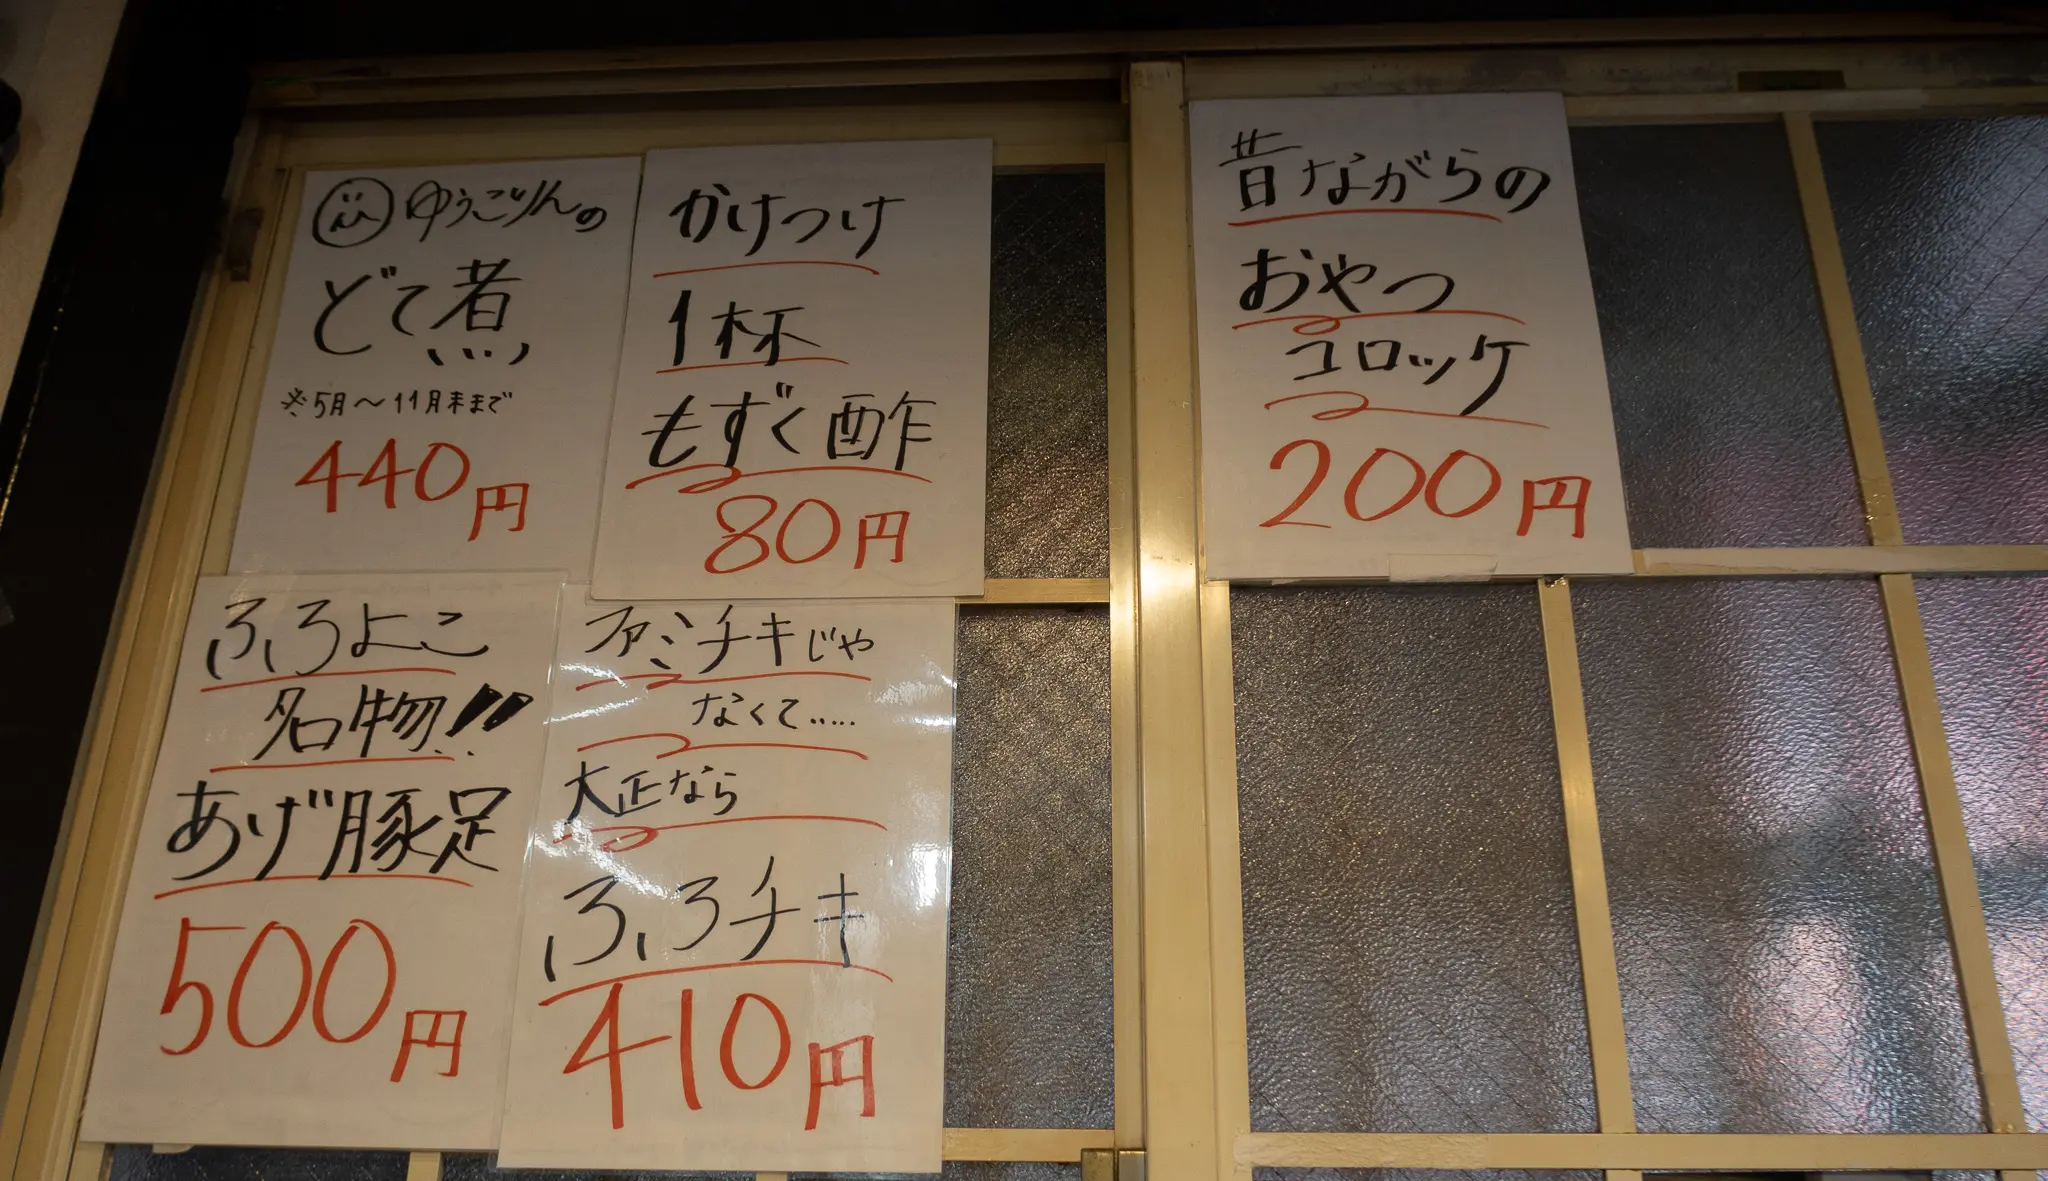 ゆうこりんの
どて煮
※5月～11月末まで
440円
かけつけ
1杯
もずく酢
80円
昔ながらの
おやつ
コロッケ
200円
ふろよこ
名物!!
あげ豚足
500円
ファミチキじゃ
なくて.....
大正なら
ふろチキ
410円